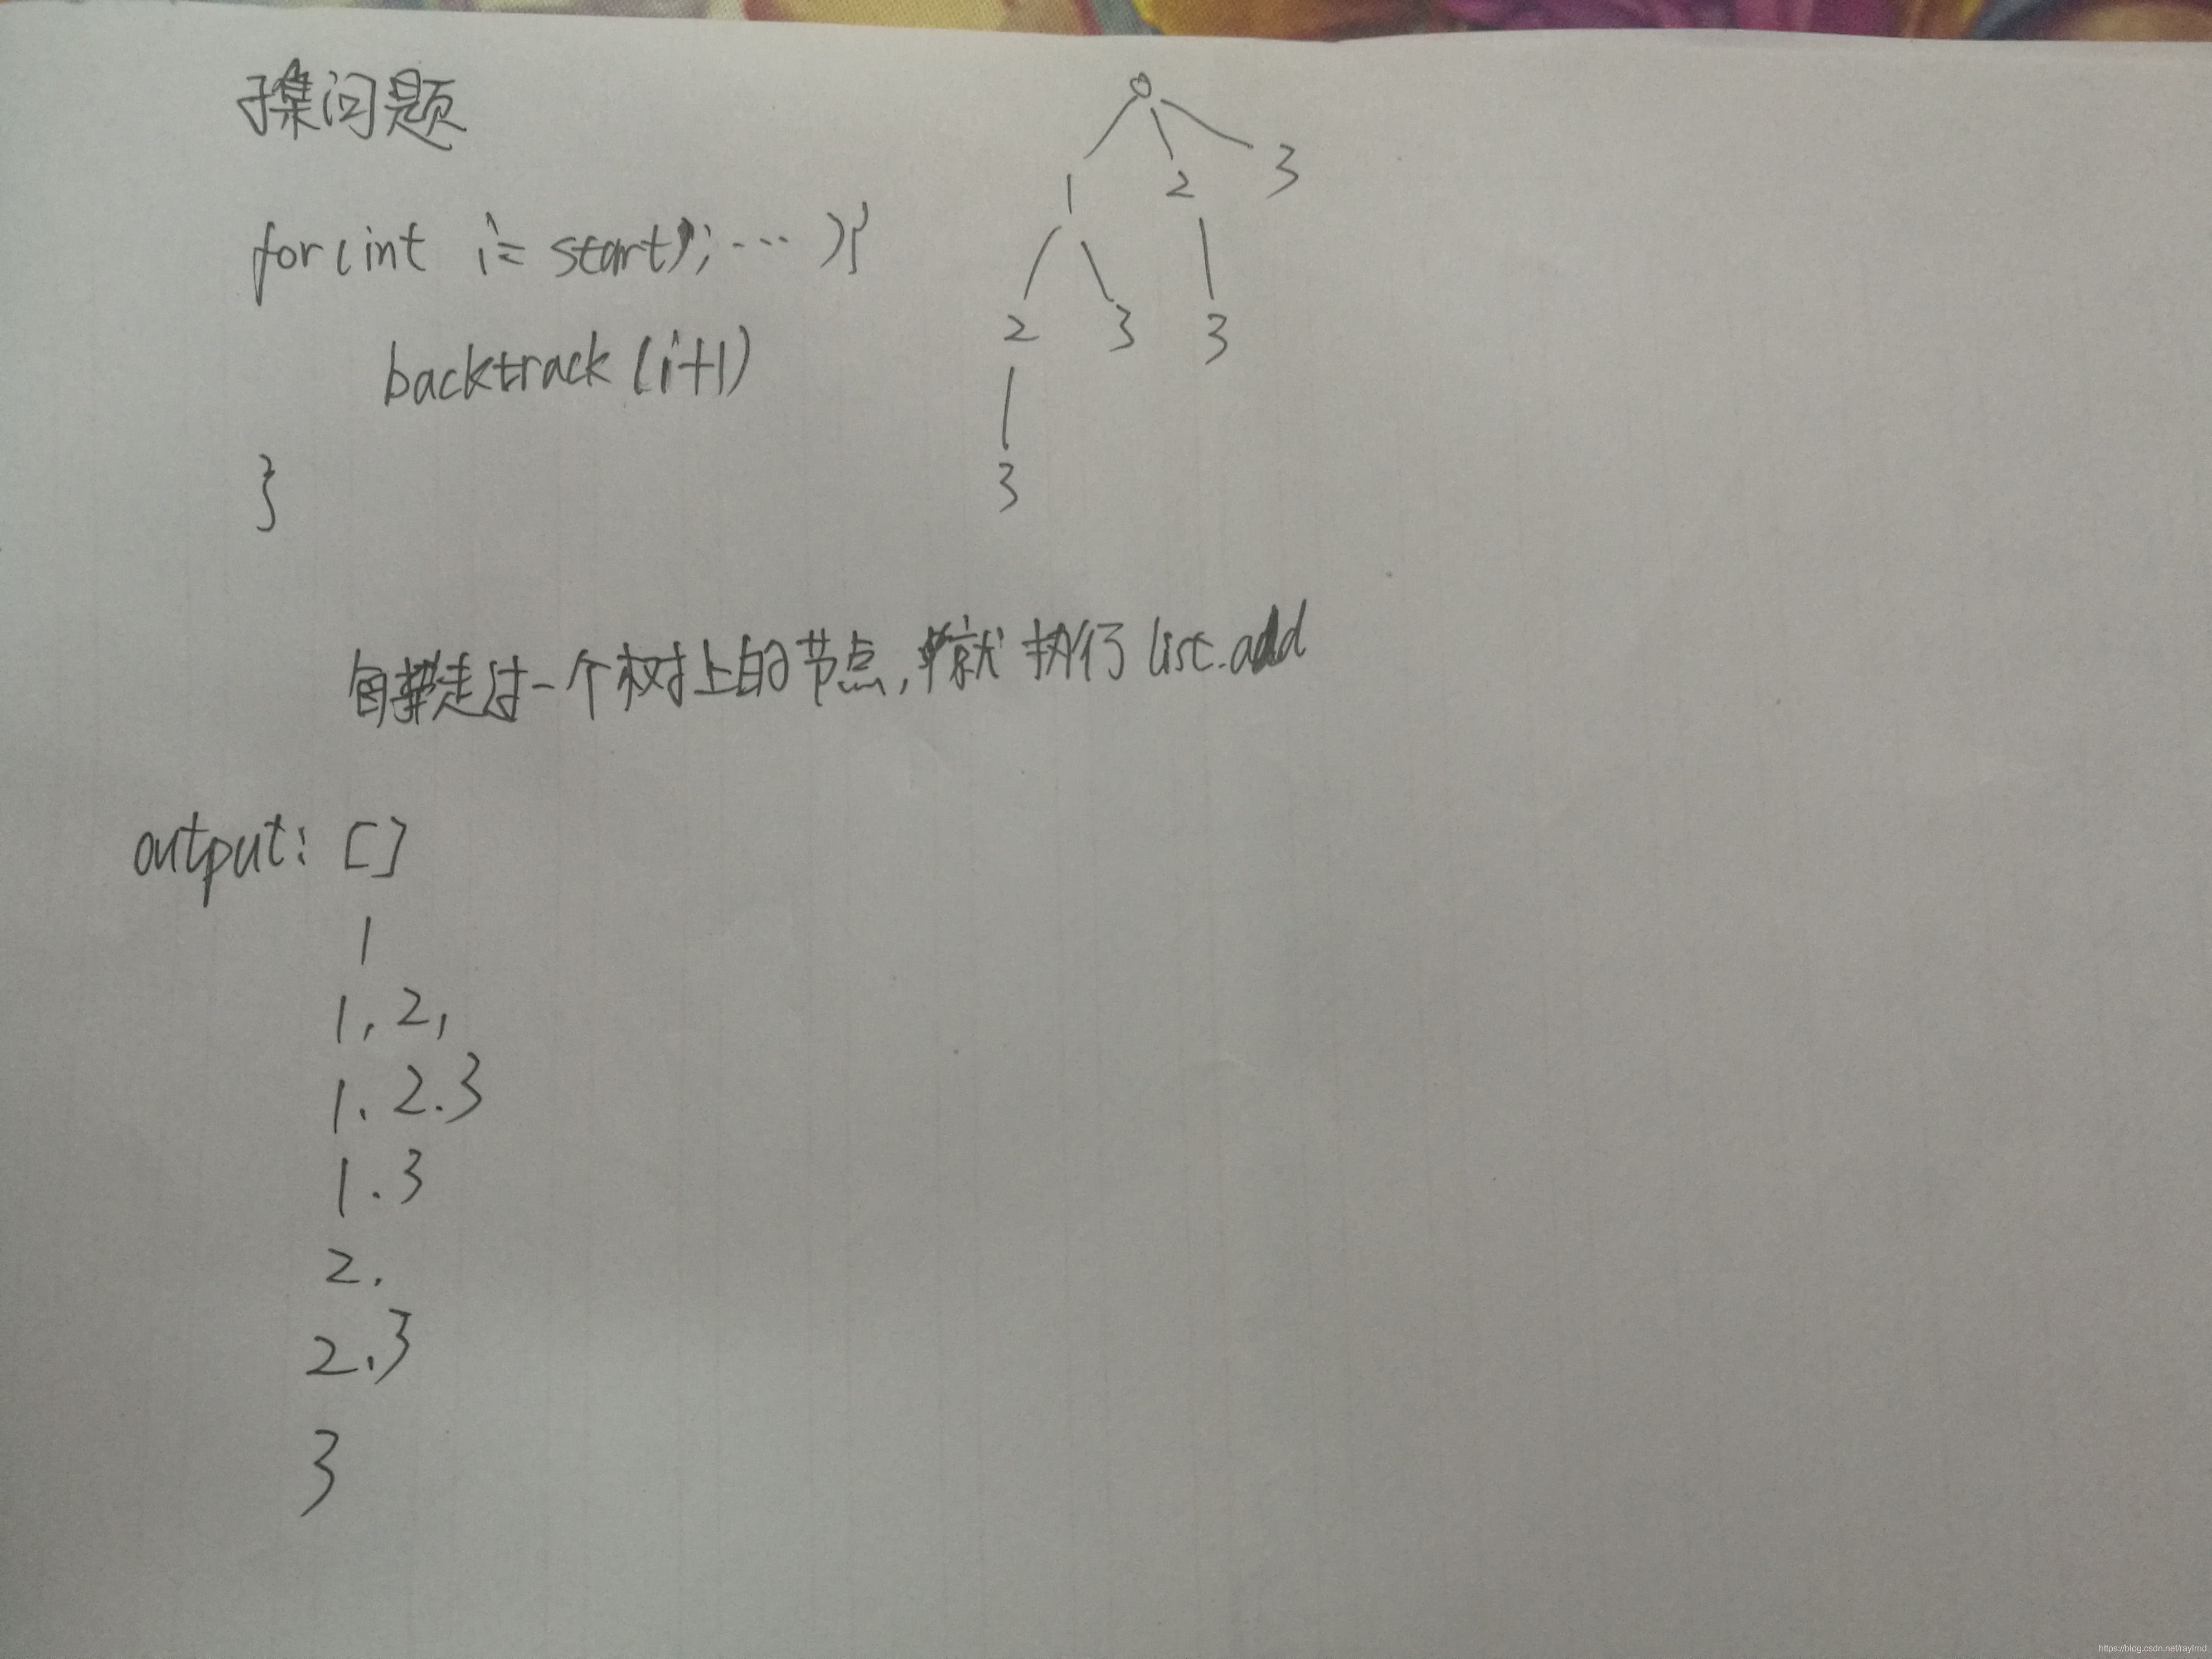 子集问题
for(int i= start; ... ){
backtrack(i+1)
}
0
1 2 3
2 3 3
3
走过一个树上的节点,就执行 list.add
output: []
1
1, 2,
1. 2.3
1.3
2.
2.3
3
https://blog.csdn.net/raylrnd